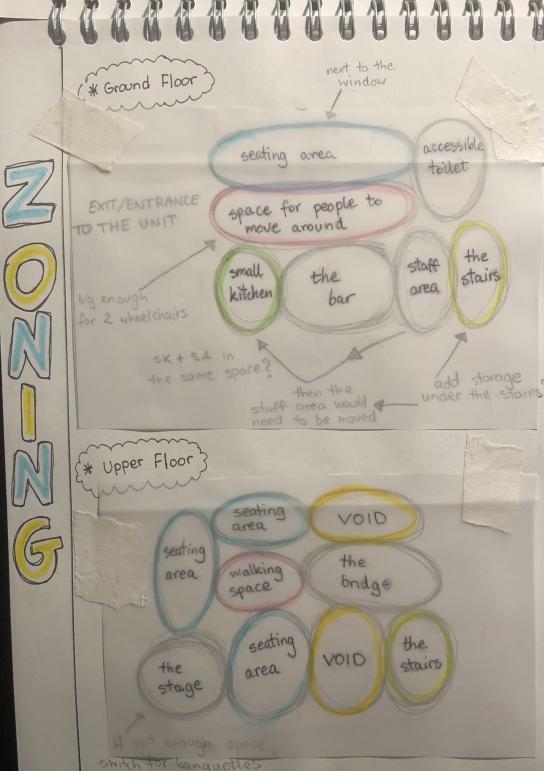 ZONING
* Ground Floor
next to the
window
seating area
accessible
toilet
EXIT/ENTRANCE
TO THE UNIT
space for people to
move around
small
kitchen
the
bar
staff
area
the
stairs
big enough
for 2 wheelchairs
SK + SA in
the same space?
then the
staff area would
need to be moved
add storage
under the stairs
* Upper Floor
seating
area
seating
area
VOID
walking
space
the
bridge
the
stage
seating
area
VOID
the
stairs
if not enough space,
switch for banquettes